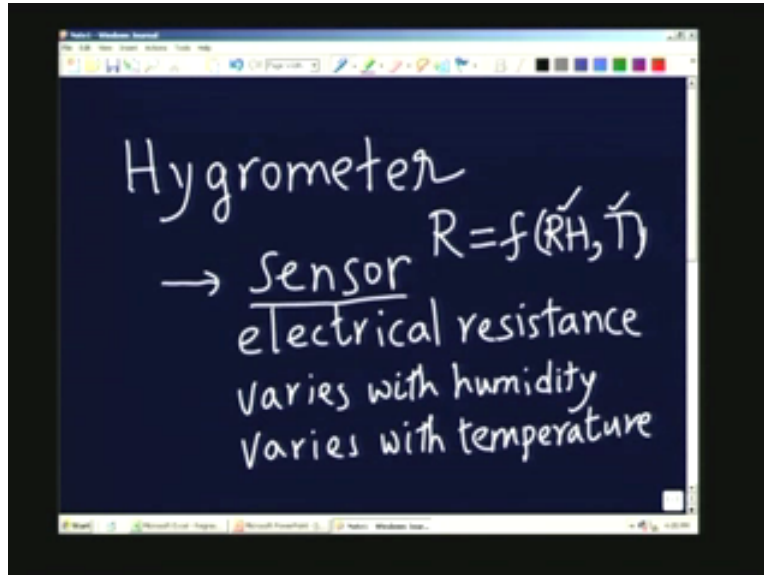 Note1 - Windows Journal
File Edit View Insert Actions Tools Help
Hygrometer
R=f(RH,T)
→ Sensor
electrical resistance
varies with humidity
varies with temperature
Start